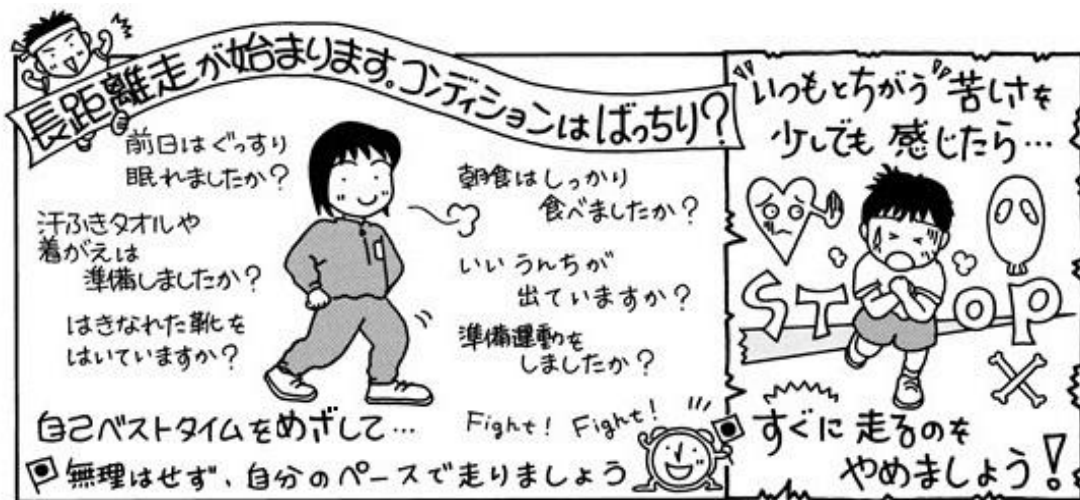 長距離走が始まります。コンディションはばっちり?
前日はぐっすり
眠れましたか?
汗ふきタオルや
着がえは
準備しましたか?
はきなれた靴を
はいていますか?
朝食はしっかり
食べましたか?
いいうんちが
出ていますか?
準備運動を
しましたか?
自己ベストタイムをめざして…
Fight! Fight!
無理はせず、自分のペースで走りましょう
"いつもとちがう"苦しさを
少しでも感じたら…
STOP
すぐに走るのを
やめましょう!